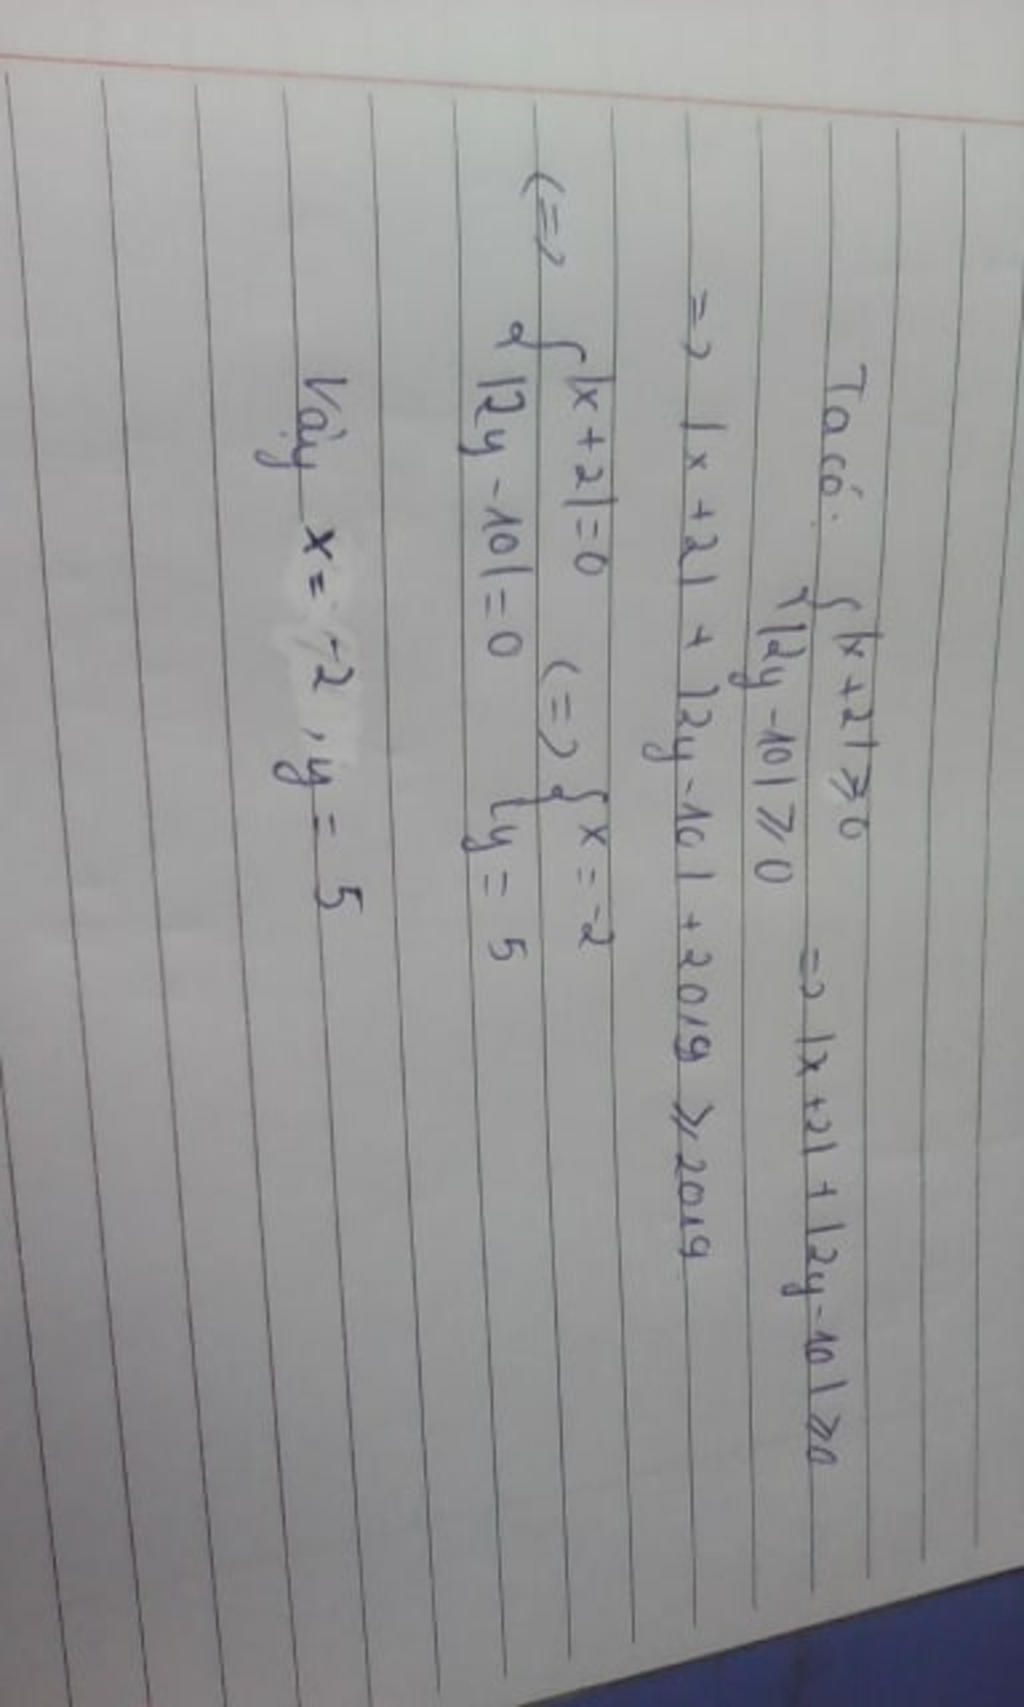 Ta có: { |x + 2| ⩾ 0 => |x + 2| + |2y - 10| ⩾ 0
{ |2y - 10| ⩾ 0
=> |x + 2| + |2y - 10| + 2019 ⩾ 2019
(=> { |x + 2| = 0 (=> { x = -2
{ |2y - 10| = 0 { y = 5
Vậy x = -2, y = 5